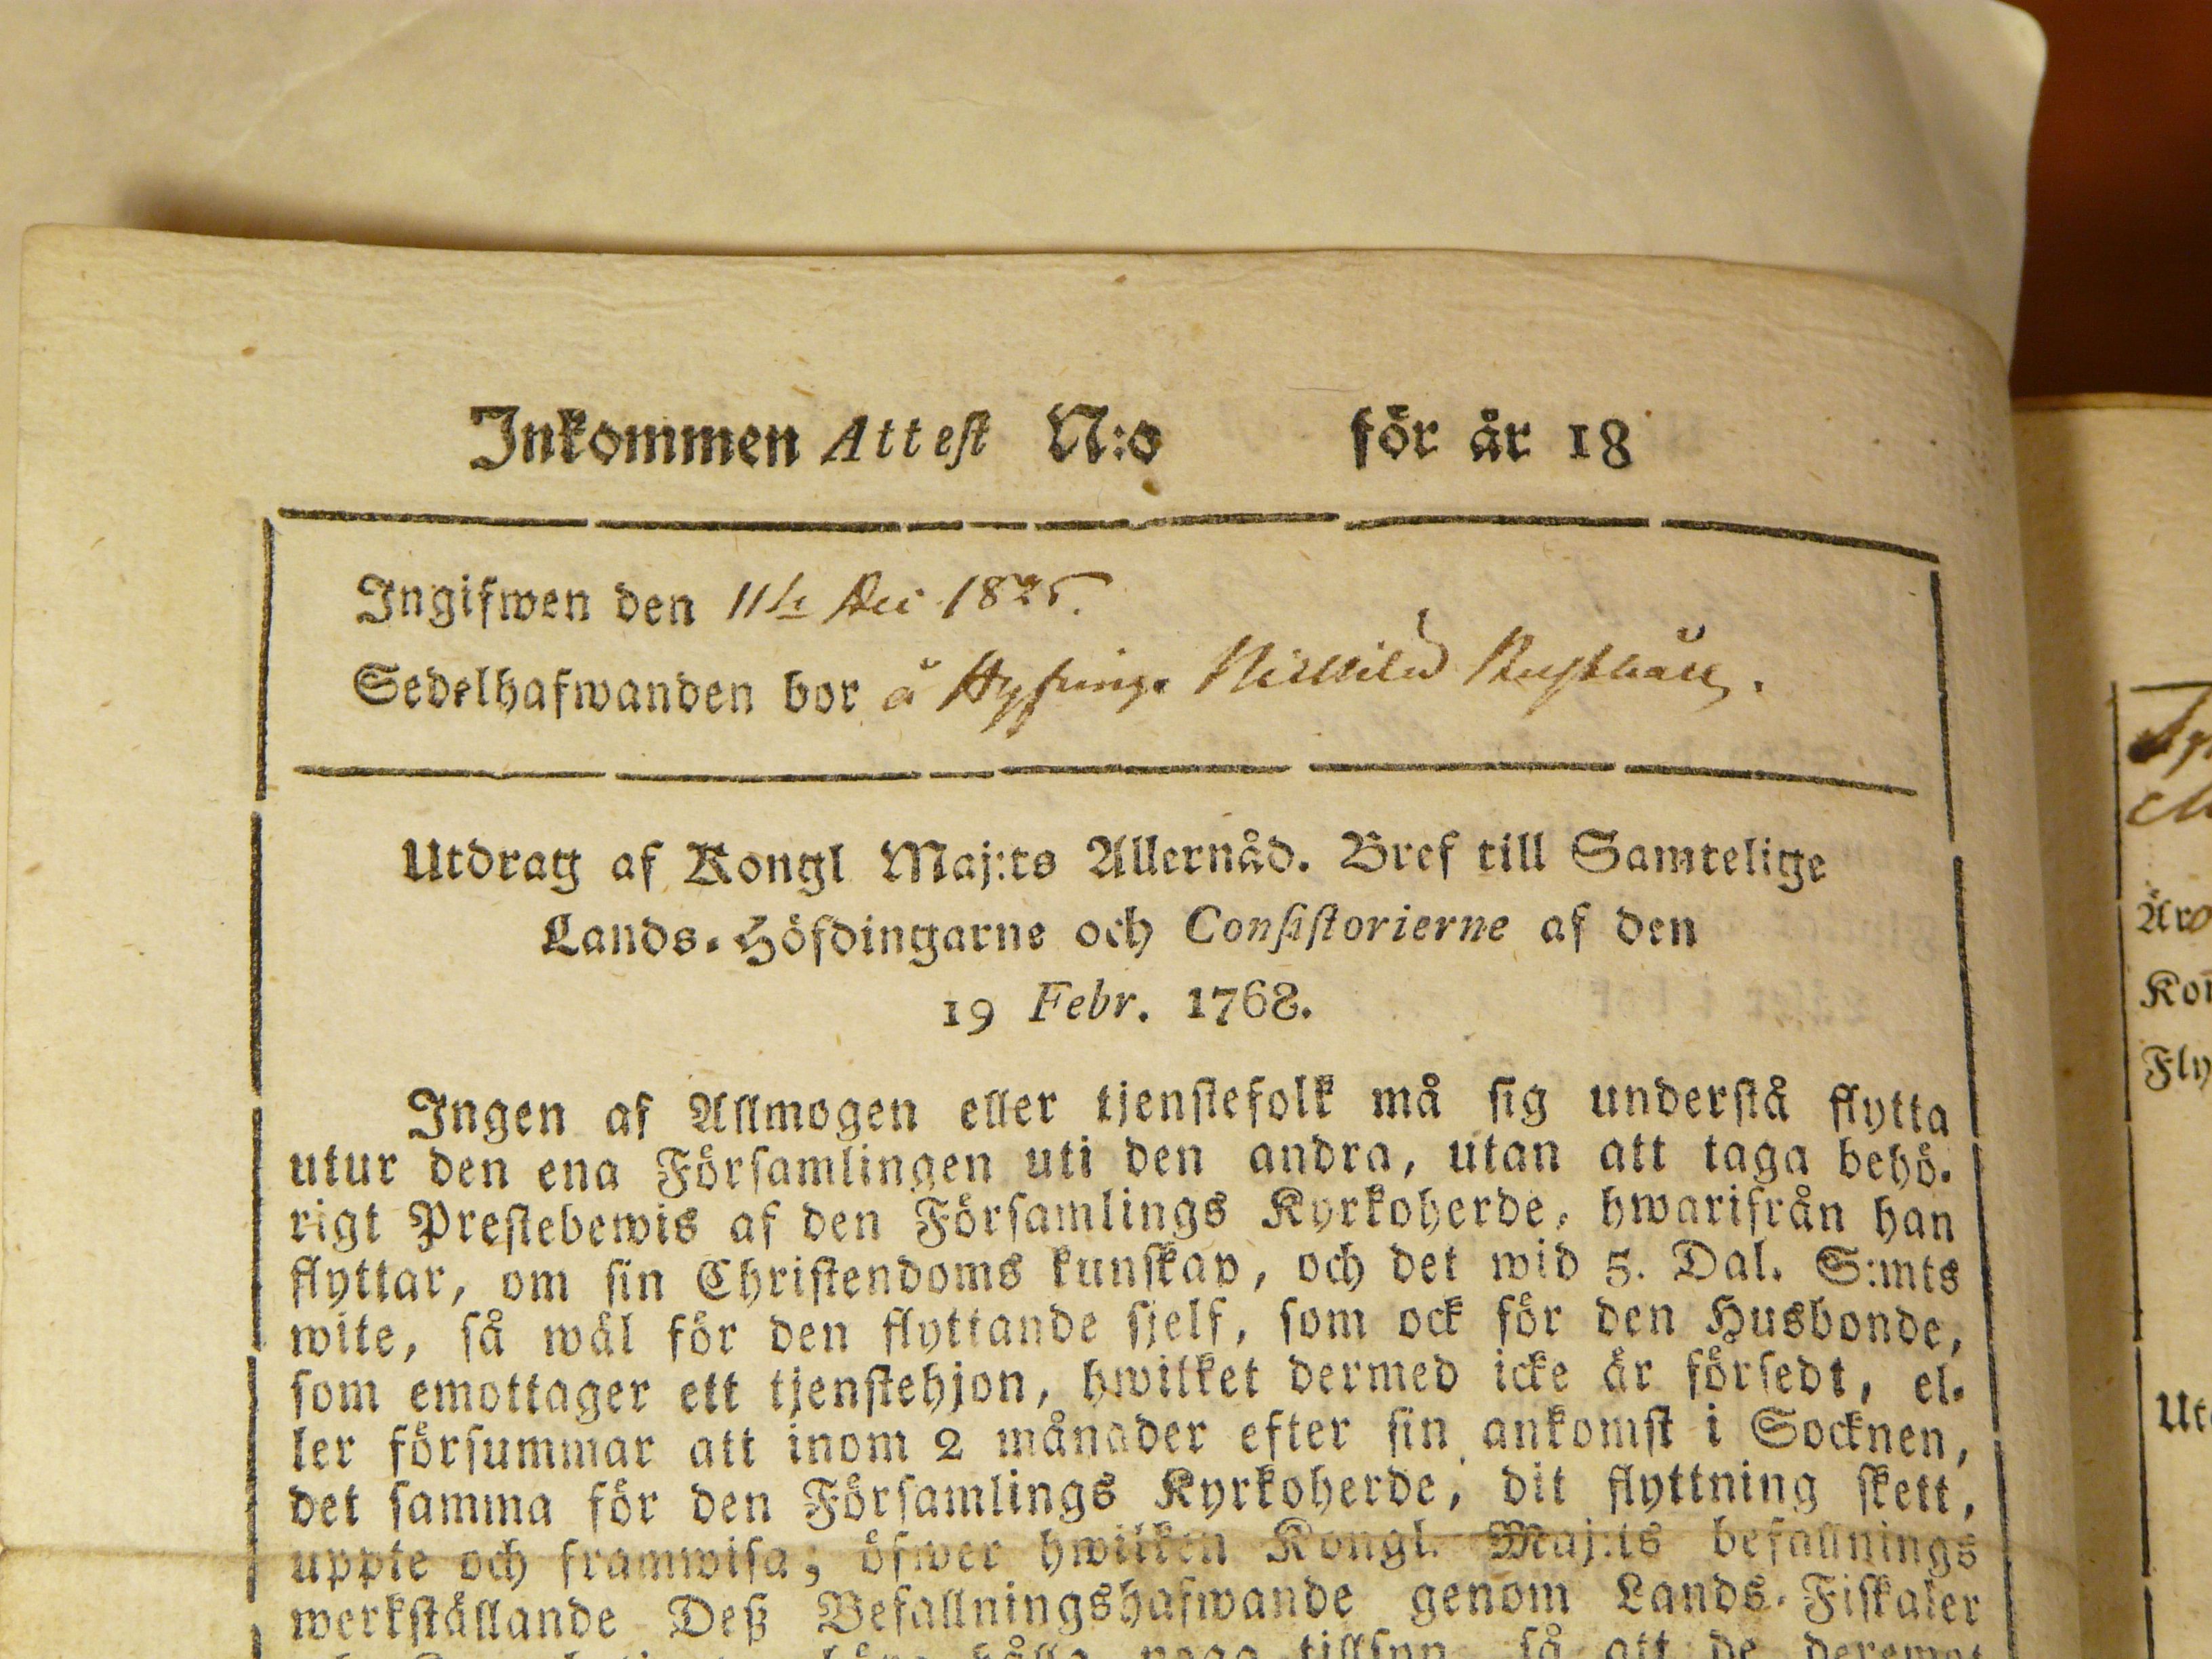 Inkommen Attest N:o för år 18
Ingifwen den 11te Dec 1825.
Sedelhafwanden bor å
Utdrag af Kongl Maj:ts Allernåd. Bref till Samtelige
Lands-Höfdingarne och Consistorierne af den
19 Febr. 1768.
Ingen af Allmogen eller tjenstefolk må sig understå flytta
utur den ena Församlingen uti den andra, utan att taga behö-
rigt Prestebewis af den Församlings Kyrkoherde, hwarifrån han
flyttar, om sin Christendoms kunskap, och det wid 5. Dal. S:mts
wite, så wäl för den flyttande sjelf, som ock för den Husbonde,
som emottager ett tjenstehjon, hwilket dermed icke är försedt, el-
ler försummar att inom 2 månader efter sin ankomst i Socknen,
det samma för den Församlings Kyrkoherde, dit flyttning skett,
uppte och framwisa; öfwer hwilken Kongl. Maj:ts befallnings
werkställande Deß Befallningshafwande genom Lands-Fiskaler
tillsyn, så att de deremot
Äro
Kon
Fly
Ut